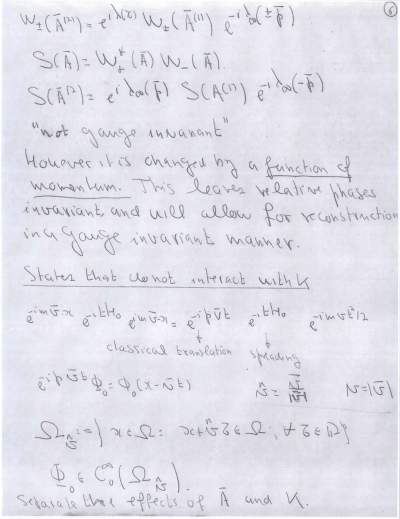 6
W±(Ā⁽²⁾) = e^{iλ(x)} W±(Ā⁽¹⁾) e^{-iλ∞(±p̄)}
S(Ā) = W₊*(Ā) W₋(Ā)
S(Ā²) = e^{iλ∞(p̄)} S(A⁽¹⁾) e^{-iλ∞(-p̄)}
"not gauge invariant"
However it is changed by a function of
momentum. This leaves relative phases
invariant and will allow for reconstruction
in a gauge invariant manner.
States that do not interact with K
e^{-imv̄·x} e^{-itH₀} e^{imv̄·x} = e^{-ip̄v̄t} e^{-itH₀} e^{-imv̄²t/2}
classical translation spreading
e^{-ip̄v̄t} Φ₀ = Φ₀(x-v̄t) v̂ = v̄/|v̄| v=|v̄|
Ω_v̂ := { x ∈ Ω : x+v̂τ ∈ Ω, ∀ τ ∈ ℝ}
Φ₀ ∈ C₀^∞(Ω_v̂).
Separate the effects of Ā and K.